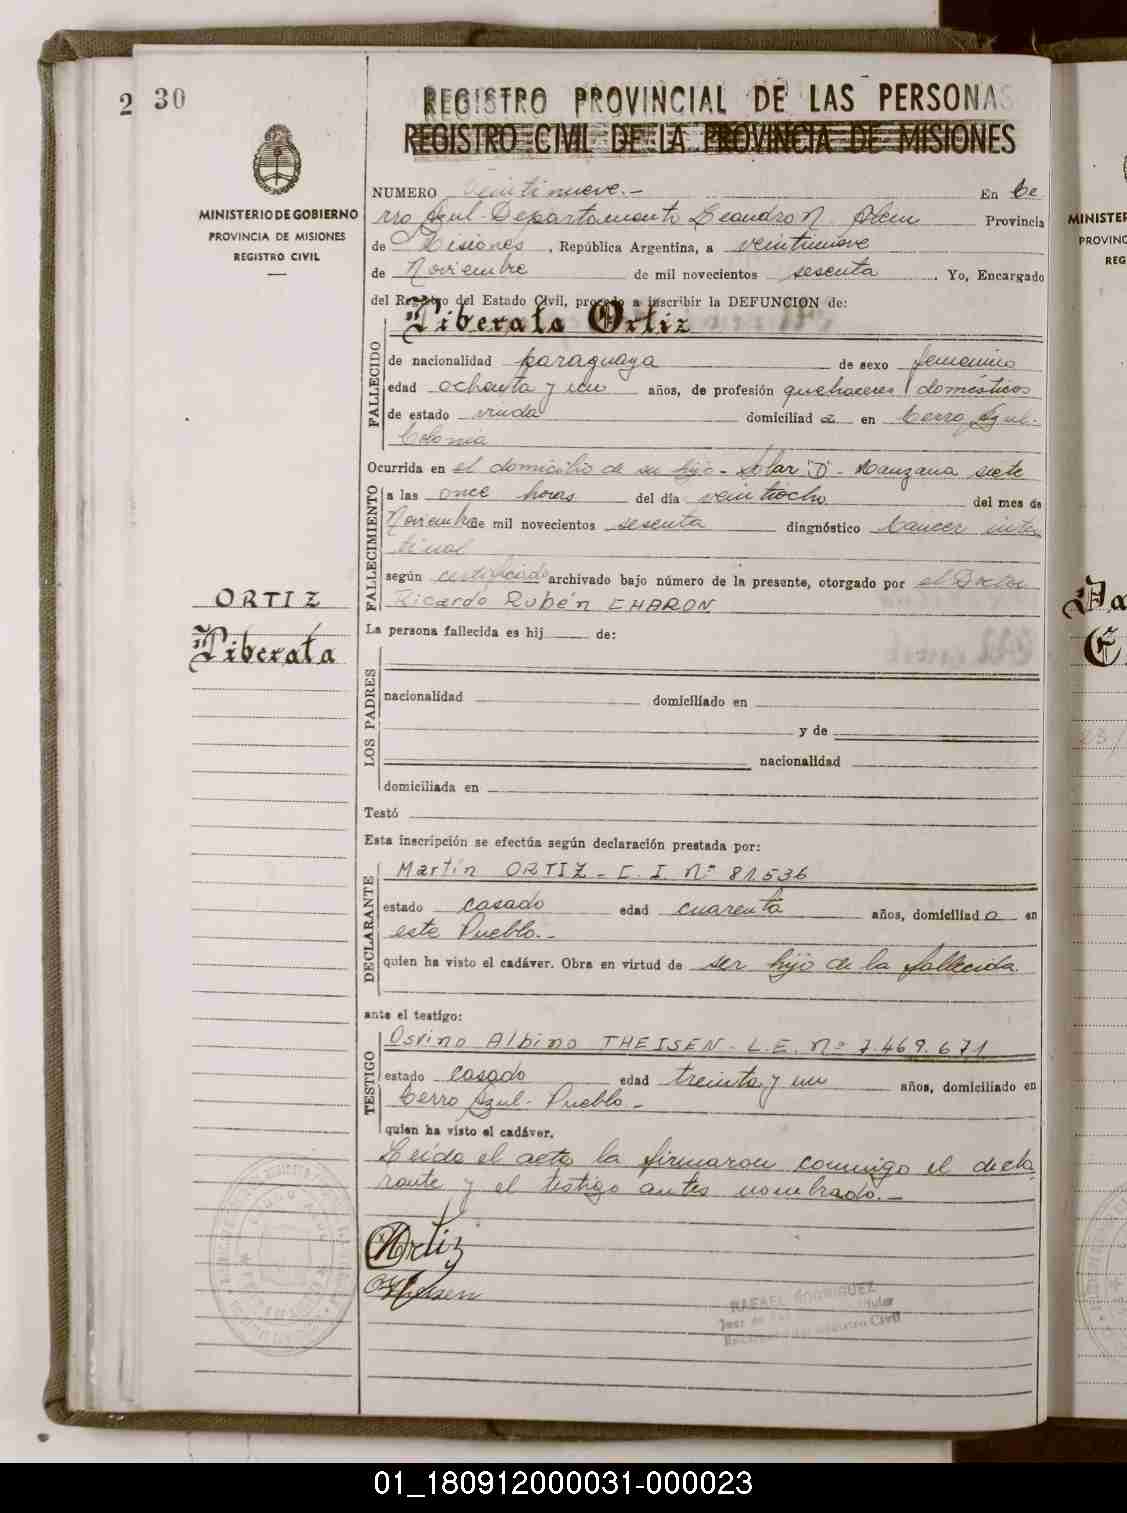 2 30
REGISTRO PROVINCIAL DE LAS PERSONAS
REGISTRO CIVIL DE LA PROVINCIA DE MISIONES
MINISTERIO DE GOBIERNO
PROVINCIA DE MISIONES
REGISTRO CIVIL
NUMERO Veintinueve.- En Ce
rro Azul-Departamento Leandro N. Alem Provincia
de Misiones, República Argentina, a veintinueve
de Noviembre de mil novecientos sesenta. Yo, Encargado
del Registro del Estado Civil, procedo a inscribir la DEFUNCION de:
Liberata Ortiz
FALLECIDO
de nacionalidad paraguaya de sexo femenino
edad ochenta y un años, de profesión quehaceres domésticos
de estado viuda domiciliad a en Cerro Azul-
Colonia
Ocurrida en el domicilio de su hijo- Solar "D"- Manzana siete
FALLECIMIENTO
a las once horas del día veintiocho del mes de
Noviembre de mil novecientos sesenta diagnóstico Cancer intes
tinal
según certificado archivado bajo número de la presente, otorgado por el Doctor
Ricardo Rubén CHARON
ORTIZ
Liberata
La persona fallecida es hij de:
LOS PADRES
nacionalidad domiciliado en
y de
nacionalidad
domiciliada en
Testó
Esta inscripción se efectúa según declaración prestada por:
DECLARANTE
Martín ORTIZ - C. I. Nº 81.536
estado casado edad cuarenta años, domiciliad o en
este Pueblo.-
quien ha visto el cadáver. Obra en virtud de ser hijo de la fallecida.
ante el testigo:
TESTIGO
Osvino Albino THEISEN - L.E. Nº 7.469.671
estado casado edad treinta y un años, domiciliado en
Cerro Azul- Pueblo.-
quien ha visto el cadáver.
Leída el acta la firmaron conmigo el decla
rante y el testigo antes nombrado.-
Ortiz
Theisen
RAFAEL RODRIGUEZ
MINISTER
PROVINC
REG
01_180912000031-000023